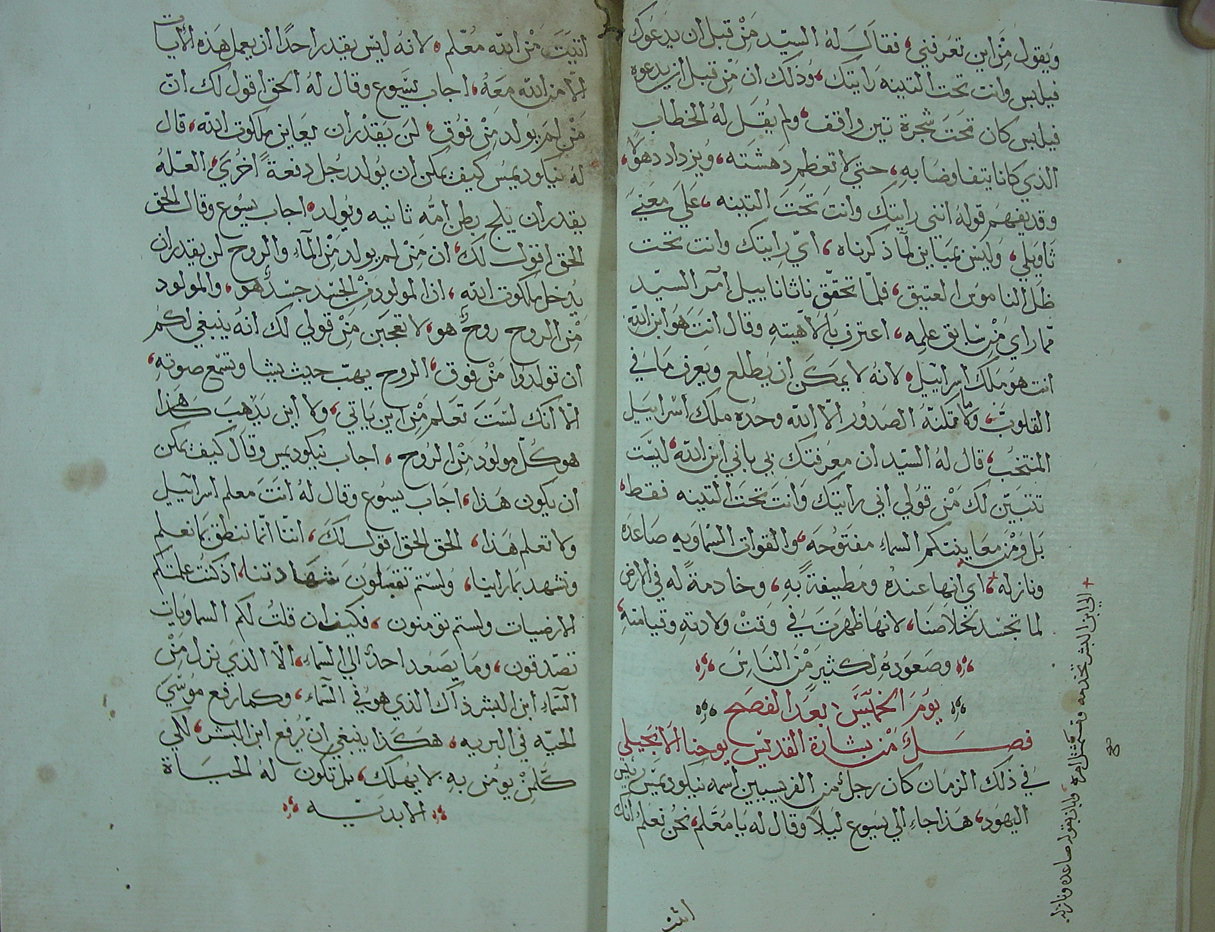 ويقول من اين تعرفني، فقال له السيد من قبل ان يدعوك
فيلبس وانت تحت التينه رايتك، وذلك ان من قبل ان يدعوه
فيلبس كان تحت شجرة تين واقف، ولم يقل له الخطاب
الذي كانا يتفاوضا به، حتي لا تعظم دهشته، ويزداد دهولا،
وقد يفهم قوله انني رايتك وانت تحت التينه، علي معني
تاويلي، وليس بمباين لما ذكرناه، اي رايتك وانت تحت
ظل الناموس العتيق، فلما تحقق ناثانابيل امر السيد
مما راي من سابق علمه، اعترف بالاهيته وقال انت هو ابن الله
انت هو ملك اسراييل، لانه لا يمكن ان يطلع ويعرف ما في
القلوب، وما تكنه الصدور الا الله وحده ملك اسراييل
المنتخب، قال له السيد ان معرفتك بي باني ابن الله، ليست
تتبين لك من قولي اني رايتك وانت تحت التينه فقط،
بل ومن معاينتكم السماء مفتوحه، والقوات السماويه صاعده
ونازله، اي انها عنده ومطيفة به، وخادمة له في الارض
لما تجسد لخلاصنا، لانها ظهرت في وقت ولادته وقيامته،
وصعوده لكثير من الناس
يوم الخميس بعد الفصح
فصل من بشارة القديس يوحنا الانجيلي
في ذلك الزمان كان رجل من الفريسيين اسمه نيكوديمس ريس
اليهود، هذا جاء الي يسوع ليلا وقال له يا معلم، نحن نعلم انك
اتيت
الي ابن البشر تخدمه
وبان بقوله صاعده ونازله
صح
اتيت من الله معلم، لانه ليس يقدر احدا ان يعمل هذه الايات
الا من الله معه، اجاب يسوع وقال له الحق اقول لك ان
من لم يولد من فوق، لن يقدر ان يعاين ملكوت الله، قال
له نيكوديمس كيف يمكن ان يولد رجل دفعة اخري، العله
يقدر ان يلج بطن امه ثانيه ويولد، اجاب يسوع وقال الحق
الحق اقول لك، ان من لم يولد من الماء والروح لن يقدر ان
يدخل ملكوت الله، اذ المولود من الجسد جسد هو، والمولود
من الروح روح هو، لا تعجبن من قولي لك انه ينبغي لكم
ان تولدوا من فوق، الروح يهب حيث يشا وتسمع صوته،
الا انك لست تعلم من اين ياتي، ولا اين يذهب هكذا
هو كل مولود من الروح، اجاب نيكوديمس وقال كيف يمكن
ان يكون هذا، اجاب يسوع وقال له انت معلم اسراييل
ولا تعلم هذا، الحق الحق اقول لك، اننا انما ننطق بما نعلم
ونشهد بما راينا، ولستم تقبلون شهادتنا، اذ كنت اعلمتكم
الارضيات ولستم تومنون، فكيف ان قلت لكم السماويات
تصدقون، وما يصعد احد الي السماء، الا الذي نزل من
السماء ابن البشر ذاك الذي هو في السماء، وكما رفع موسي
الحيه في البريه، هكذا ينبغي ان يرفع ابن البشر، لكي
كل من يومن به لا يهلك، بل تكون له الحياة
الابديه